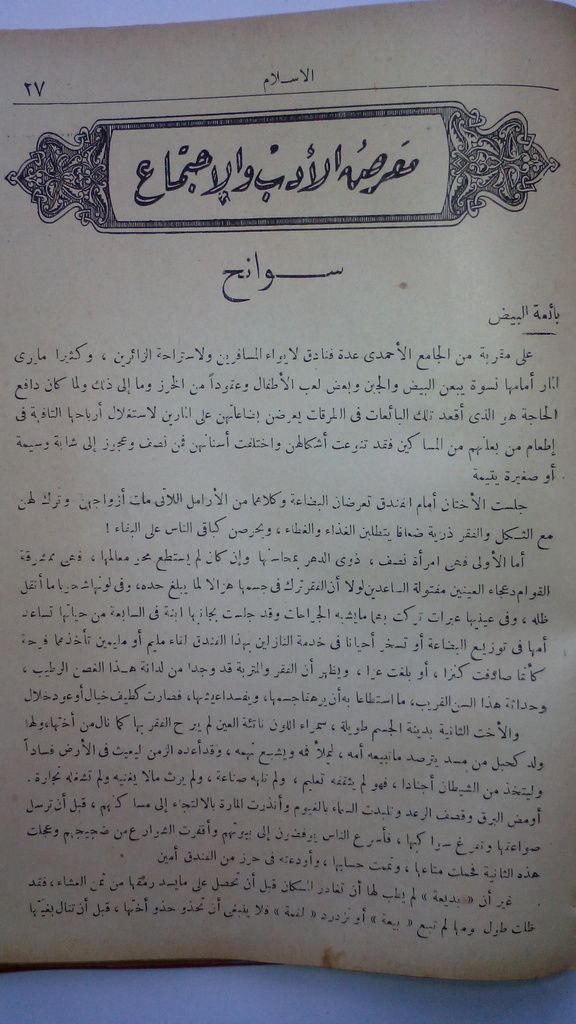 الاسلام
٢٧
معرض الأدب والاجتماع
سوانح
بائعة البيض
على مقربة من الجامع الأحمدى عدة فنادق لايواء المسافرين ولاستراحة الزائرين ، وكثيرا مايرى
المار أمامها نسوة يبعن البيض والجبن وبعض لعب الأطفال وعقوداً من الخرز وما إلى ذلك ولما كان دافع
الحاجة هو الذى أقعد تلك البائعات فى الطرقات يعرضن بضاعاتهن على المارين لاستغلال أرباحها التافهة فى
إطعام من بعلنهم من المساكين فقد تنوعت أشكالهن واختلفت أسنانهن فمن نصف وعجوز إلى شابة وسيمة
أو صغيرة يتيمة .
جلست الأختان أمام الفندق تعرضان البضاعة وكلاهما من الأرامل اللائى مات أزواجهن وترك لهن
مع الشكل والفقر ذرية ضعافا يتطلبن الغذاء والغطاء ، ويحرصن كباقى الناس على البقاء !
أما الأولى فهى امرأة نصف ، ذوى الدهر بمحاسنها وإن كان لم يستطع محو معالمها ، فهى ممشوقة
القوام دعجاء العينين مفتولة الساعدين لولا أن الفقر ترك فى جسمها هزالا لما يبلغ حده، وفى لونها شحوبا ما أثقل
ظله ، وفى عينيها عبرات تركت بهما مايشبه الجراحات وقد جلست بجانبها ابنة فى السابعة من حياتها تساعد
أمها فى توزيع البضاعة أو تسخر أحيانا فى خدمة النازلين بهذا الفندق لقاء مليم أو مليمين تأخذهما فرحة
كأنما صادفت كنزا ، أو بلغت عزا ، ويظهر أن الفقر والتربة قد وجدا من لدانة هذا الغصن الرطيب ،
وحداثة هذا السن القريب، ما استطاعا به أن يرهقا جسمها، ويفسدا عيشها، فصارت كطيف خيال أو عود خلال
والأخت الثانية بدينة الجسم طويلة ، سمراء اللون ناتئة العين لم يبرح الفقر بها كما نال من أختها، ولها
ولد كحبل من مسد يترصد ماتبيعه أمه ، ليملأ فمه ويشبع نهمه ، وقد أعده الزمن ليعيث فى الأرض فساداً
وليتخذ من الشيطان أجنادا ، فهو لم يثقفه تعليم ، ولم تلهه صناعة ، ولم يرث مالا يغنيه ولم تشغله تجارة .
أومض البرق وقصف الرعد وتلبدت السماء بالغيوم وأنذرت المارة بالالتجاء إلى مساكنهم ، قبل أن ترسل
صواعقها وتفرغ سواكبها ، فأسرع الناس يوفضون إلى بيوتهم وأقفرت الشوارع من ضجيجهم وعجلت
هذه الثانية فحملت متاعها ، وتممت حسابها ، وأودعته فى حرز من الفندق أمين
غير أن « بديعة » لم يطب لها أن تغادر المكان قبل أن تحصل على مايسد رمقها من ثمن العشاء ، فقد
ظلت طول يومها لم تبع « بيعة » أو تزدرد « لقمة » فلا ينبغى أن تحذو حذو أختها ، قبل أن تنال بغيتها